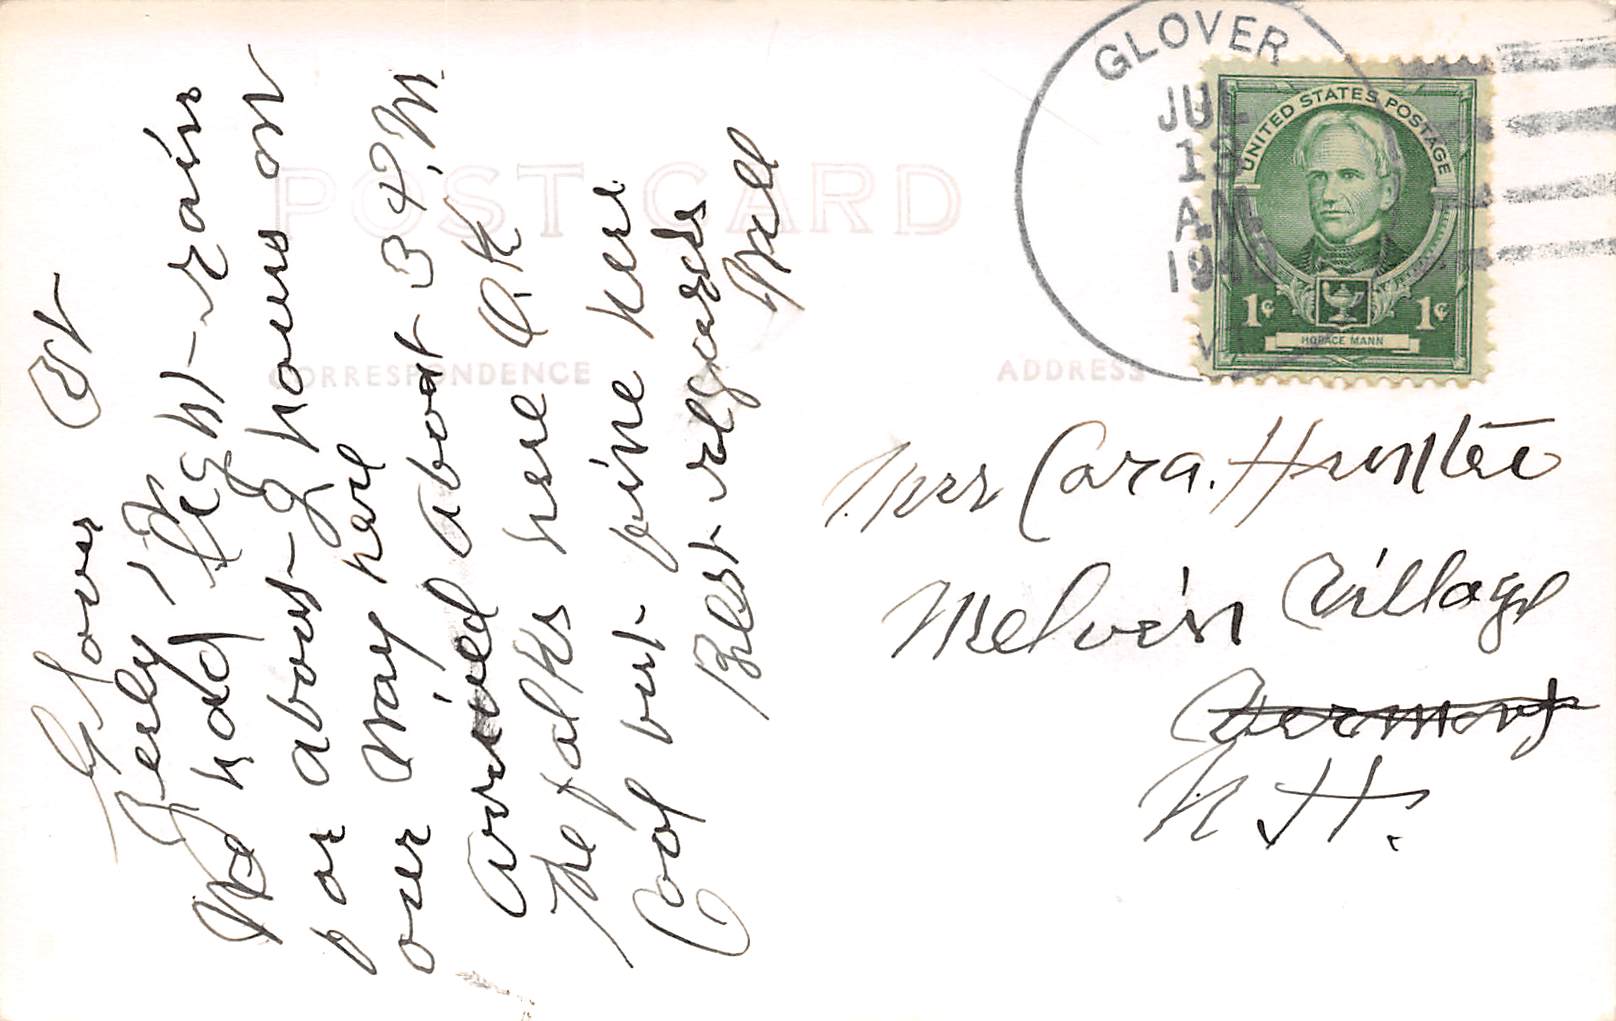 POST CARD
CORRESPONDENCE
ADDRESS
GLOVER
JUL
13
AM
1940
UNITED STATES POSTAGE
1¢ 1¢
HORACE MANN
Glover Vt
July 12
We had light rain
for about 2 hours on
our way here
arrived about 3 P.M.
The folks here O.K.
Cool but fine here
Best regards
Will
Mrs Cora. Hunter
Melvin Village
Vermont
N.H.